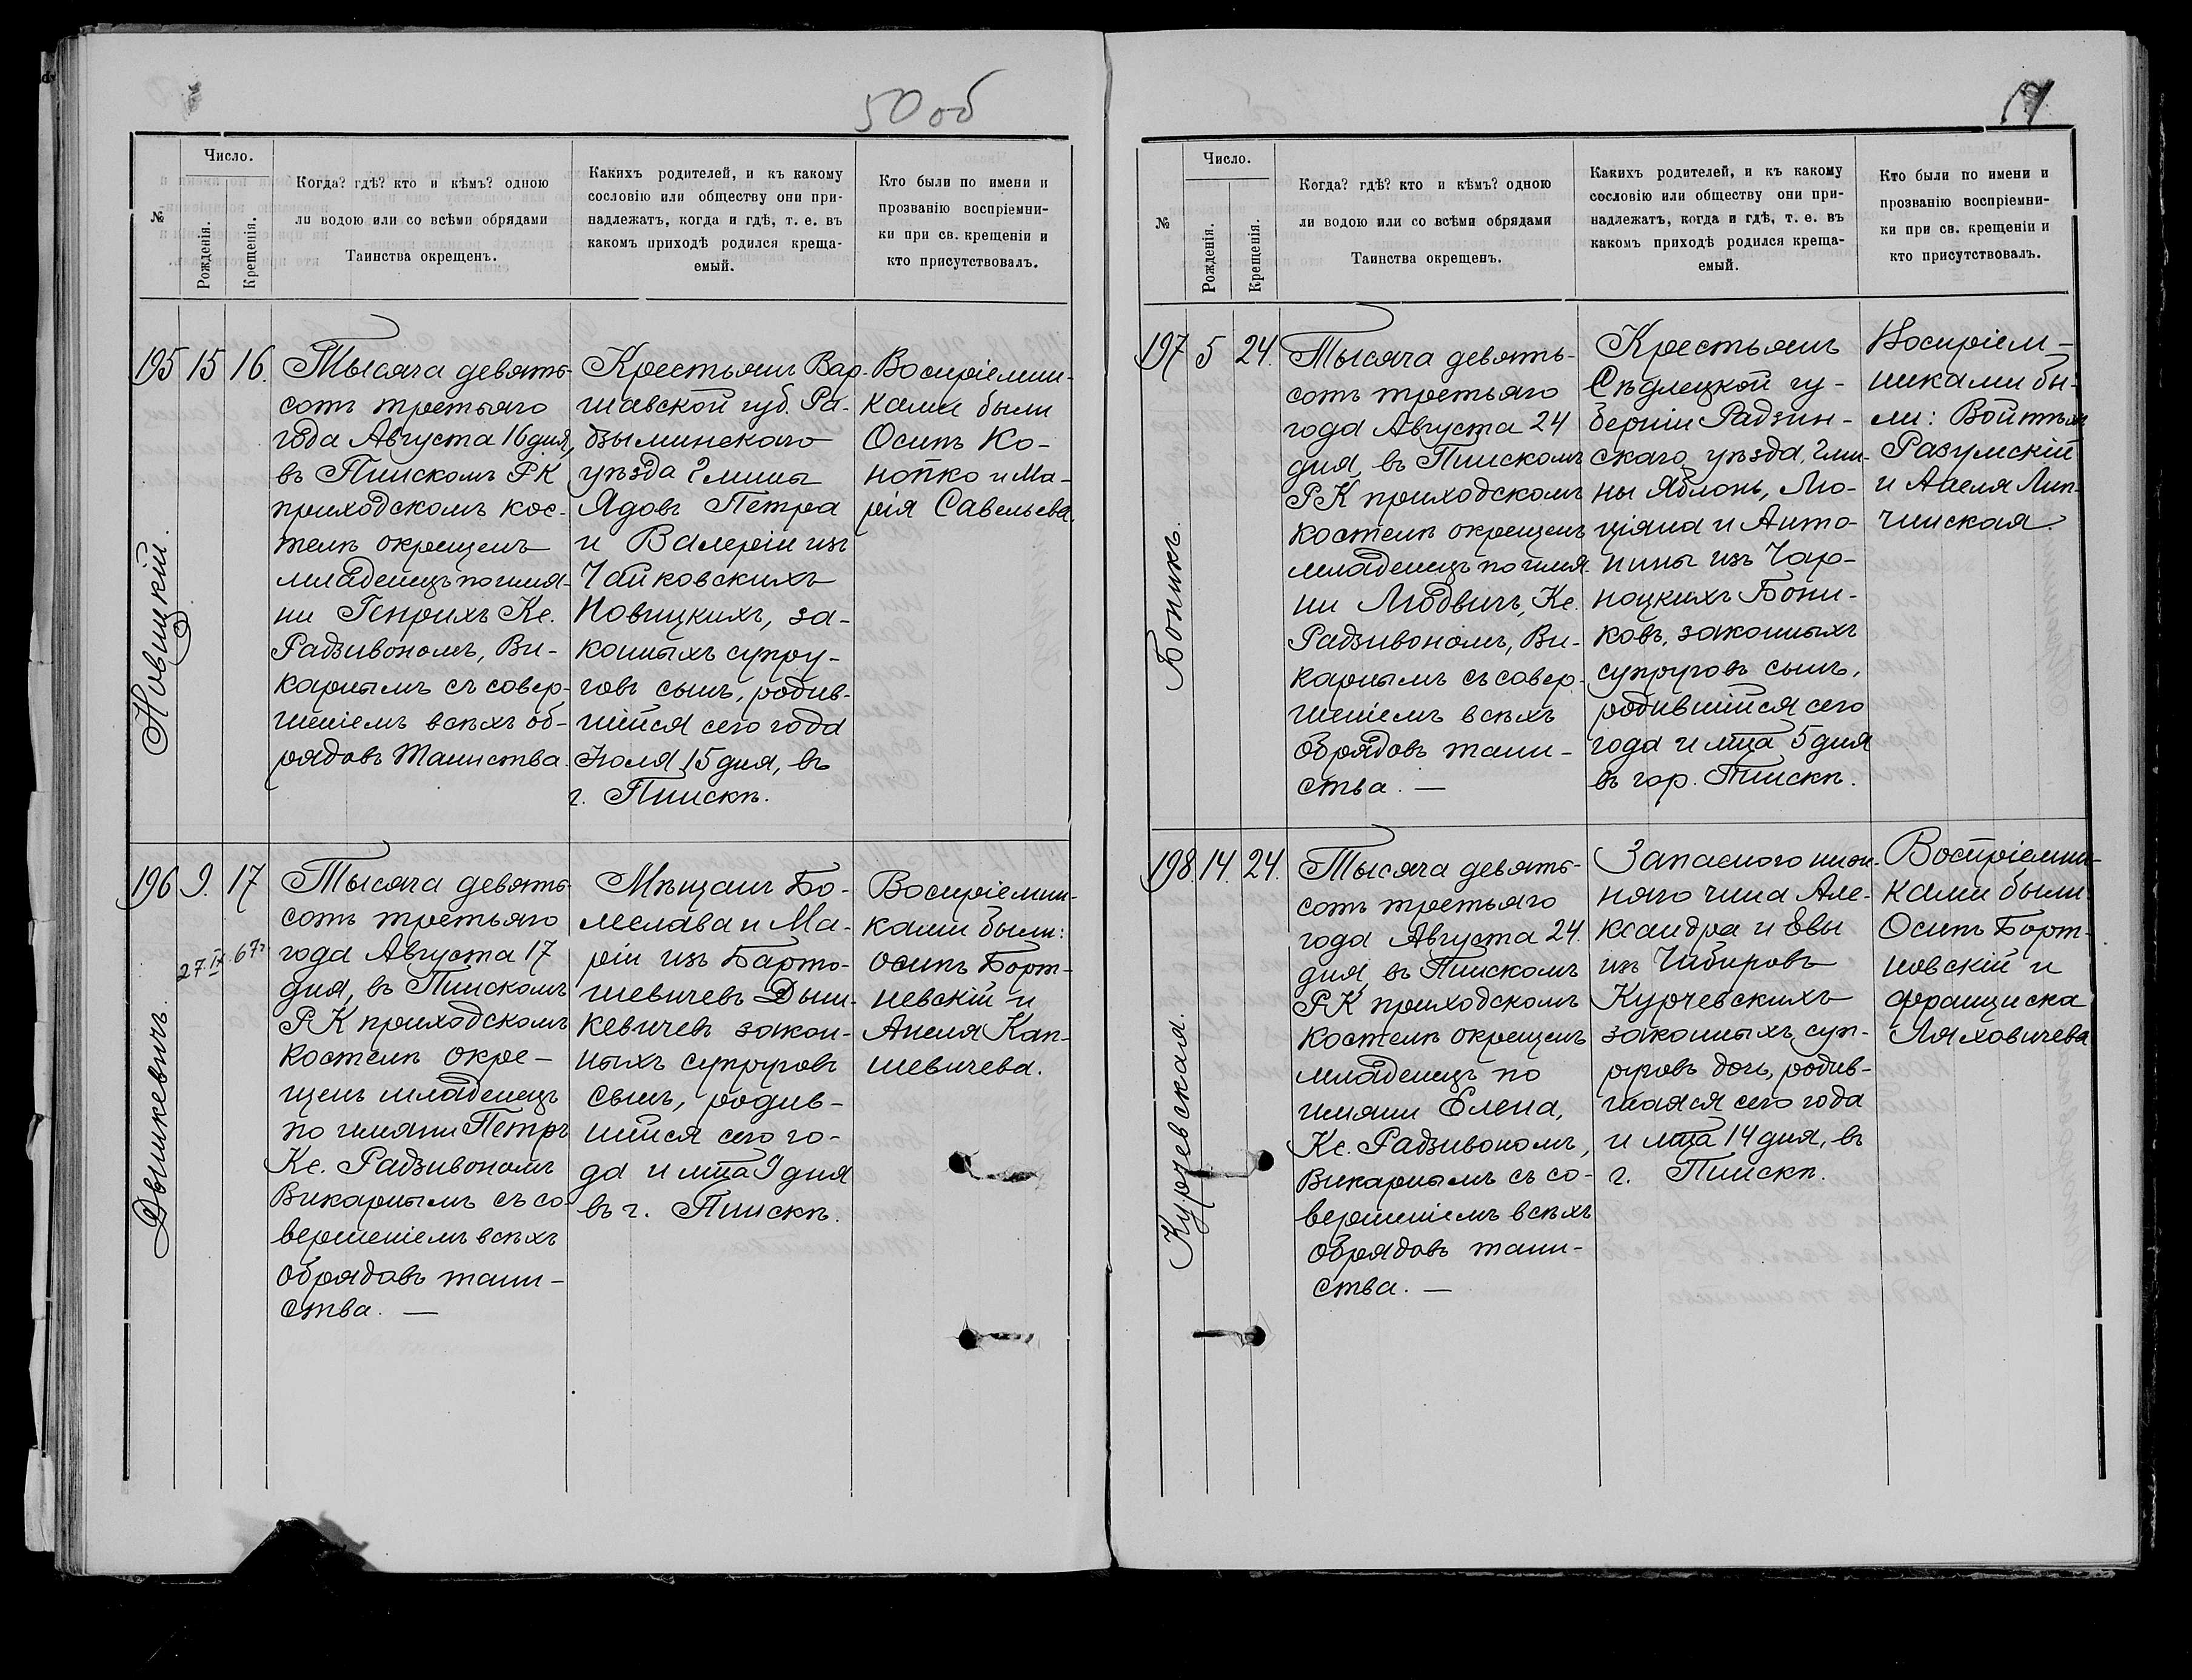 50 об
№
Число.
Рожденія.
Крещенія.
Когда? гдѣ? кто и кѣмъ? одною
ли водою или со всѣми обрядами
Таинства окрещенъ.
Какихъ родителей, и къ какому
сословію или обществу они при-
надлежатъ, когда и гдѣ, т. е. въ
какомъ приходѣ родился креща-
емый.
Кто были по имени и
прозванію воспріемни-
ки при св. крещеніи и
кто присутствовалъ.
195
15
16.
Новицкій.
Тысяча девять-
сотъ третьяго
года Августа 16 дня,
въ Пинскомъ РК
приходскомъ кос-
телѣ окрещенъ
младенецъ по имя-
ни Генрихъ Кс.
Радзивономъ, Ви-
карнымъ съ совер-
шеніемъ всѣхъ об-
рядовъ Таинства.
Крестьянъ Вар-
шавской губ. Ра-
дзыминскаго
уѣзда гмины
Ядовъ Петра
и Валеріи изъ
Чайковскихъ
Новицкихъ, за-
конныхъ супру-
говъ сынъ, родив-
шійся сего года
Іюля 15 дня, въ
г. Пинскѣ.
Воспріемни-
ками были
Осипъ Ко-
нопко и Ма-
рія Савельева.
196
9.
17
27.IX 67г
Дышкевичъ.
Тысяча девять-
сотъ третьяго
года Августа 17
дня, въ Пинскомъ
РК приходскомъ
костелѣ окре-
щенъ младенецъ
по имяни Петръ
Кс. Радзивономъ
Викарнымъ съ со-
вершеніемъ всѣхъ
обрядовъ таин-
ства. —
Мѣщанъ Бо-
леслава и Ма-
ріи изъ Барто-
шевичевъ Дыш-
кевичевъ закон-
ныхъ супруговъ
сынъ, родив-
шійся сего го-
да и мца 9 дня
въ г. Пинскѣ.
Воспріемни-
ками были:
Осипъ Борт-
невскій и
Анеля Кап-
шевичева.
№
Число.
Рожденія.
Крещенія.
Когда? гдѣ? кто и кѣмъ? одною
ли водою или со всѣми обрядами
Таинства окрещенъ.
Какихъ родителей, и къ какому
сословію или обществу они при-
надлежатъ, когда и гдѣ, т. е. въ
какомъ приходѣ родился креща-
емый.
Кто были по имени и
прозванію воспріемни-
ки при св. крещеніи и
кто присутствовалъ.
197
5
24.
Боникъ.
Тысяча девять-
сотъ третьяго
года Августа 24
дня, въ Пинскомъ
РК приходскомъ
костелѣ окрещенъ
младенецъ по имя-
ни Людвигъ, Кс.
Радзивономъ, Ви-
карнымъ съ совер-
шеніемъ всѣхъ
обрядовъ таин-
ства. —
Крестьянъ
Сѣдлецкой гу-
берніи Радзин-
скаго уѣзда, гми-
ны Яблонь, Лю-
ціяна и Анто-
нины изъ Чар-
ноцкихъ Бони-
ковъ, законныхъ
супруговъ сынъ,
родившійся сего
года и мца 5 дня
въ гор. Пинскѣ.
Воспріем-
никами бы-
ли: Войтѣхъ
Разумскій
и Анеля Лип-
чинская.
198.
14.
24.
Курчевская.
Тысяча девять-
сотъ третьяго
года Августа 24.
дня, въ Пинскомъ
РК приходскомъ
костелѣ окрещенъ
младенецъ по
имяни Елена,
Кс. Радзивономъ,
Викарнымъ съ со-
вершеніемъ всѣхъ
обрядовъ таин-
ства. —
Запаснаго ниж-
няго чина Але-
ксандра и Евы
изъ Чибировъ
Курчевскихъ
законныхъ суп-
руговъ дочь, родив-
шаяся сего года
и мца 14 дня, въ
г. Пинскѣ.
Воспріемни-
ками были
Осипъ Борт-
новскій и
Франциска
Ляховичева